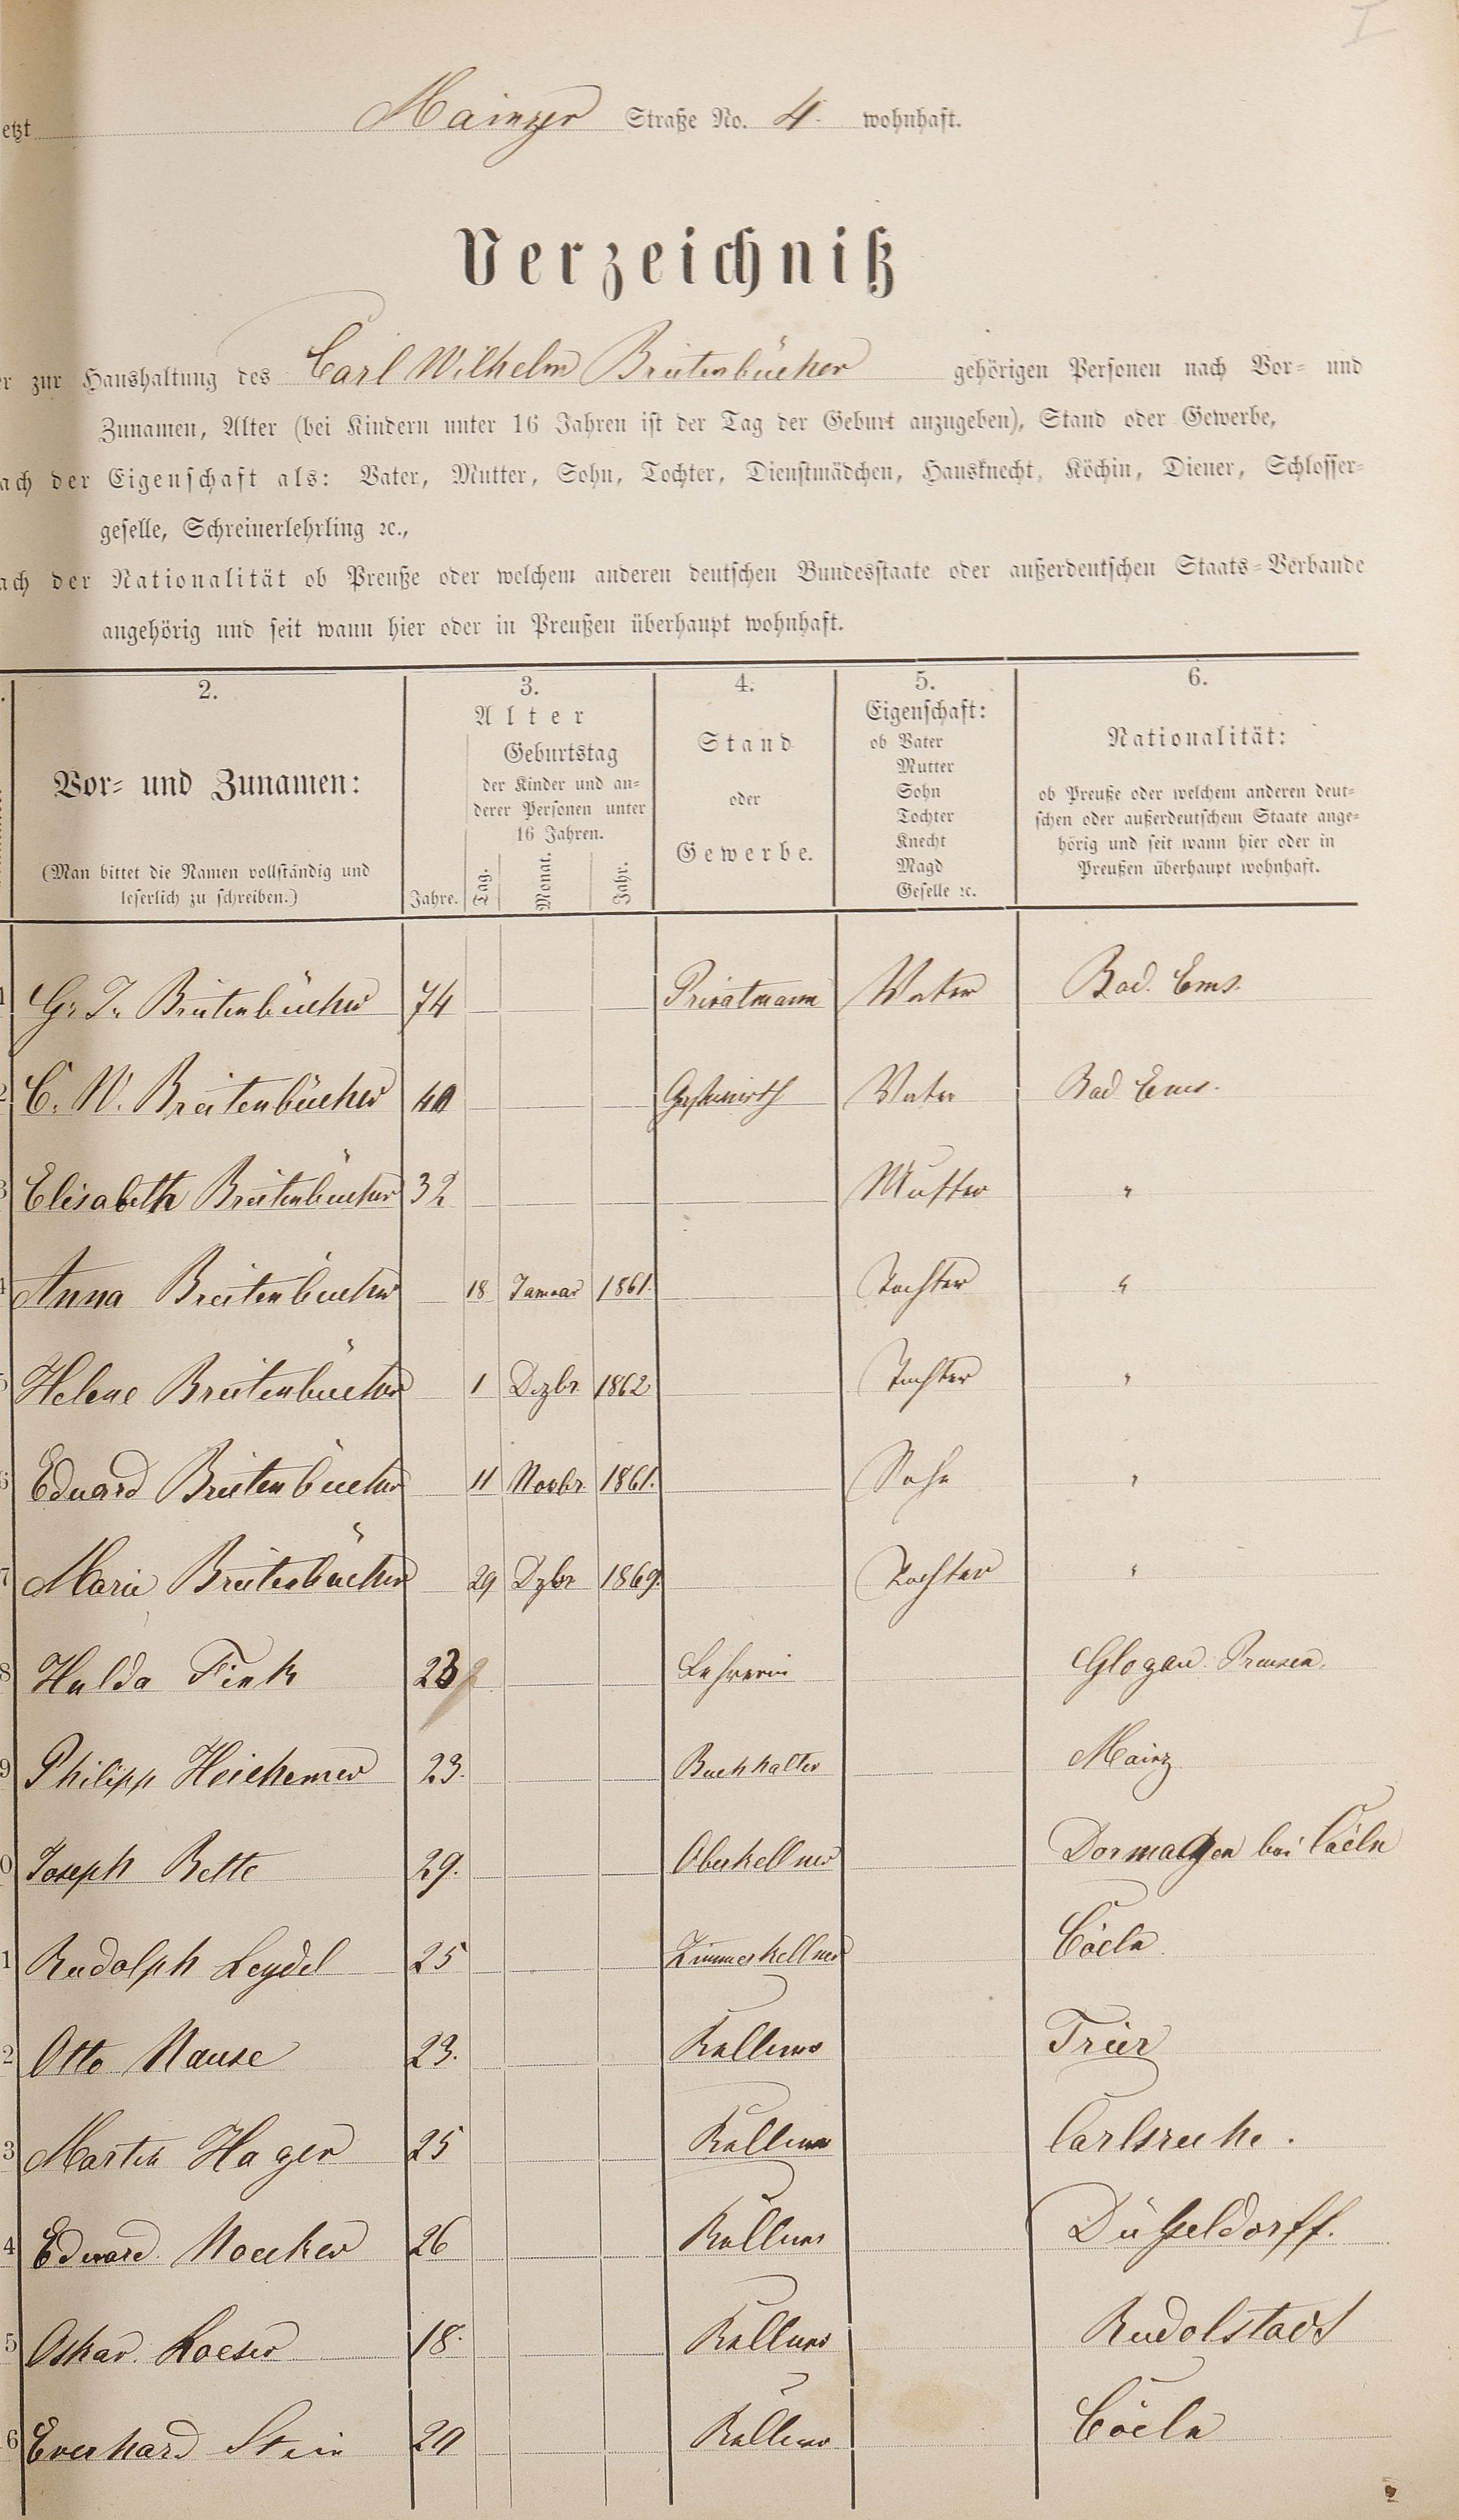 I
etzt Mainzer Straße No. 4. wohnhaft.
Verzeichniß
er zur Haushaltung des Carl Wilhelm Breitenbücher gehörigen Personen nach Vor- und
Zunamen, Alter (bei Kindern unter 16 Jahren ist der Tag der Geburt anzugeben), Stand oder Gewerbe,
ach der Eigenschaft als: Vater, Mutter, Sohn, Tochter, Dienstmädchen, Hausknecht, Köchin, Diener, Schlosser-
geselle, Schreinerlehrling ꝛc.,
ach der Nationalität ob Preuße oder welchem anderen deutschen Bundesstaate oder außerdeutschen Staats-Verbande
angehörig und seit wann hier oder in Preußen überhaupt wohnhaft.
2.
Vor- und Zunamen:
(Man bittet die Namen vollständig und
leserlich zu schreiben.)
3.
Alter
Geburtstag
der Kinder und an-
derer Personen unter
16 Jahren.
Jahre. Tag. Monat. Jahr.
4.
Stand
oder
Gewerbe.
5.
Eigenschaft:
ob Vater
Mutter
Sohn
Tochter
Knecht
Magd
Geselle ꝛc.
6.
Nationalität:
ob Preuße oder welchem anderen deut-
schen oder außerdeutschem Staate ange-
hörig und seit wann hier oder in
Preußen überhaupt wohnhaft.
1 G. J. Breitenbücher 74 Privatmann Vater Bad. Ems.
2 C. W. Breitenbücher 40 Gastwirth Vater Bad Ems.
3 Elisabeth Breitenbücher 32 Mutter "
4 Anna Breitenbücher 18 Januar 1861. Tochter "
5 Helene Breitenbücher 1 Dezbr. 1862 Tochter "
6 Eduard Breitenbücher 11 Novbr. 1861. Sohn "
7 Marie Breitenbücher 29 Dzbr 1869. Tochter "
8 Hulda Fink 23 Lehrerin Glogau. Preusen.
9 Philipp Heichemer 23. Buchhalter Mainz
0 Joseph Bette 29. Oberkellner Dormagen bei Cöeln
1 Rudolph Leydel 25 Zimmerkellner Cöeln
2 Otto Mause 23. Kellner Trier
3 Martin Hager 25 Kellner Carlsruhe.
4 Eduard Noecker 26 Kellner Düßeldorff.
5 Oskar. Loeser 18. Kellner Rudolstadt
6 Everhard Stein 20 Kellner Cöeln